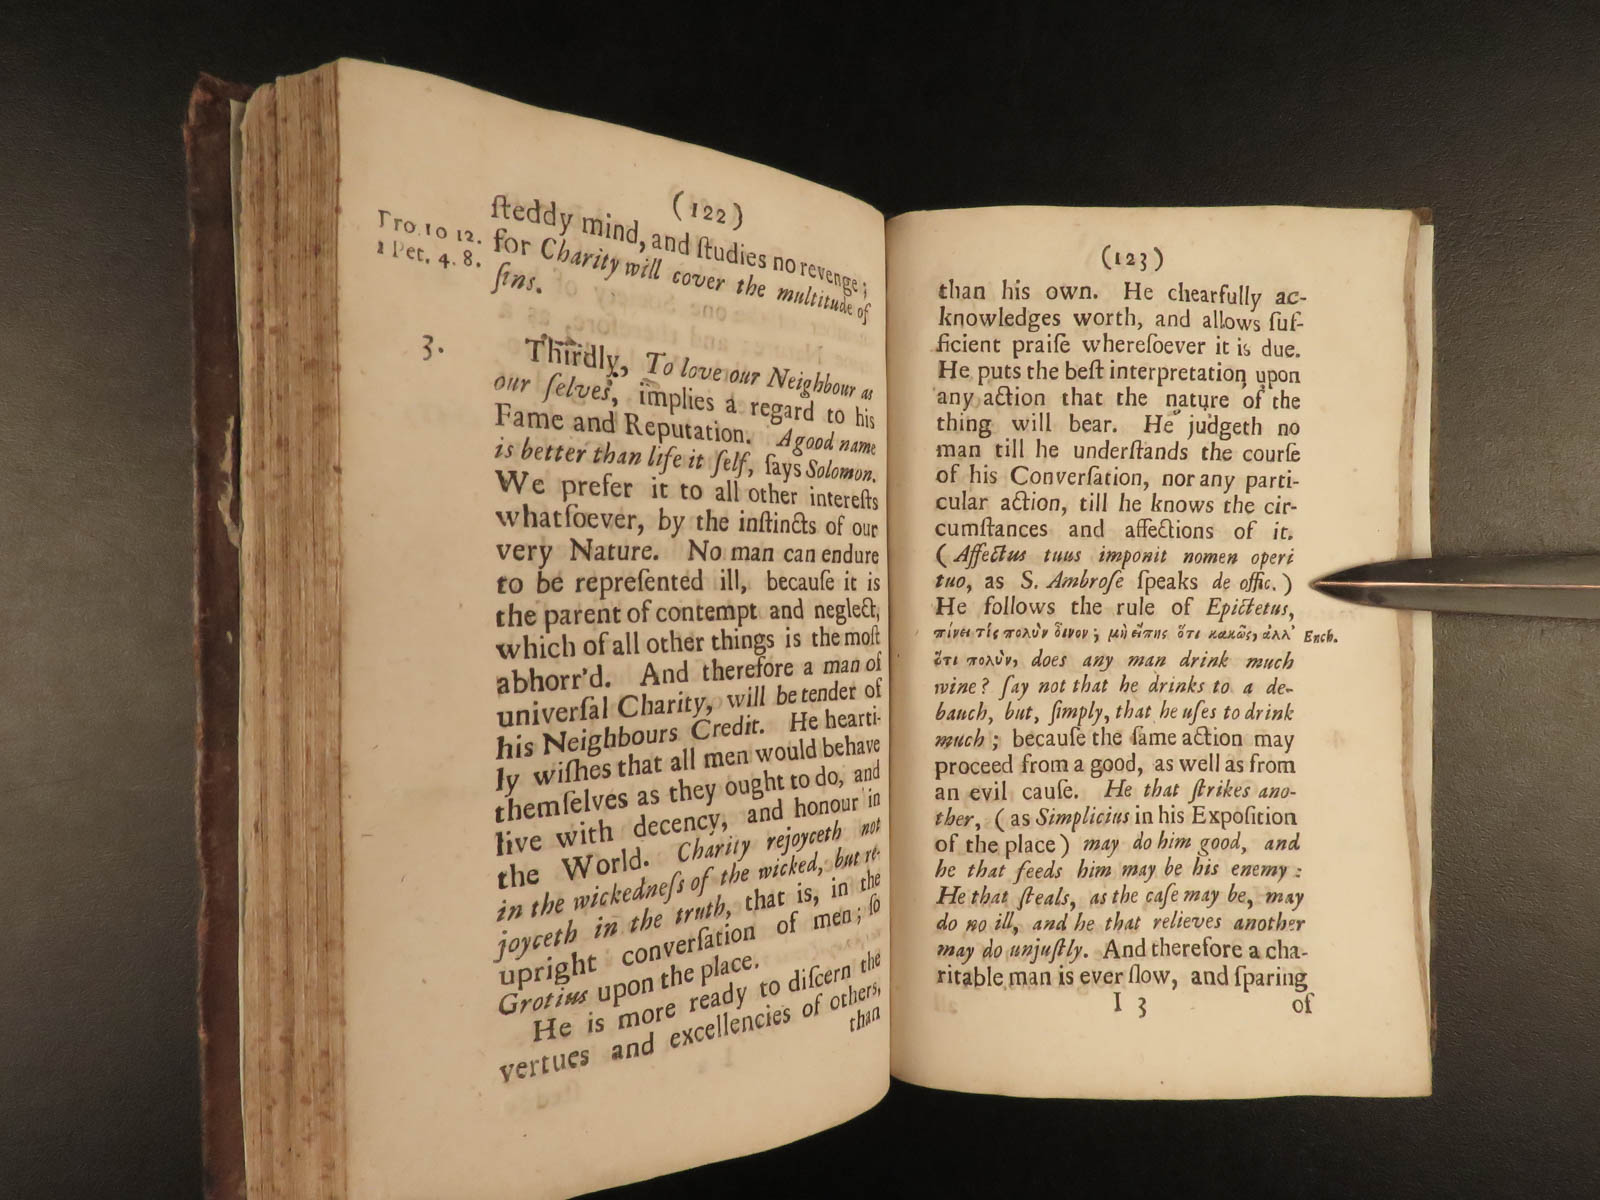 (122)
ſteddy mind, and ſtudies no revenge;
Pro. 10 12.
for Charity will cover the multitude of
1 Pet. 4. 8.
ſins.
3.
Thirdly, To love our Neighbour as
our ſelves, implies a regard to his
Fame and Reputation. A good name
is better than life it ſelf, ſays Solomon.
We prefer it to all other intereſts
whatſoever, by the inſtincts of our
very Nature. No man can endure
to be repreſented ill, becauſe it is
the parent of contempt and neglect,
which of all other things is the moſt
abhorr'd. And therefore a man of
univerſal Charity, will be tender of
his Neighbours Credit. He hearti-
ly wiſhes that all men would behave
themſelves as they ought to do, and
live with decency, and honour in
the World. Charity rejoyceth not
in the wickedneſs of the wicked, but re-
joyceth in the truth, that is, in the
upright converſation of men; ſo
Grotius upon the place.
He is more ready to diſcern the
vertues and excellencies of others,
than
(123)
than his own. He chearfully ac-
knowledges worth, and allows ſuf-
ficient praiſe whereſoever it is due.
He puts the beſt interpretation upon
any action that the nature of the
thing will bear. He judgeth no
man till he underſtands the courſe
of his Converſation, nor any parti-
cular action, till he knows the cir-
cumſtances and affections of it.
(Affectus tuus imponit nomen operi
tuo, as S. Ambroſe ſpeaks de offic.)
He follows the rule of Epictetus,
πίνει τὶς πολὺν οἶνον; μὴ εἴπῃς ὅτι κακῶς, ἀλλ' Ench.
ὅτι πολὺν, does any man drink much
wine? ſay not that he drinks to a de-
bauch, but, ſimply, that he uſes to drink
much; becauſe the ſame action may
proceed from a good, as well as from
an evil cauſe. He that ſtrikes ano-
ther, (as Simplicius in his Expoſition
of the place) may do him good, and
he that feeds him may be his enemy:
He that ſteals, as the caſe may be, may
do no ill, and he that relieves another
may do unjuſtly. And therefore a cha-
ritable man is ever ſlow, and ſparing
I 3
of